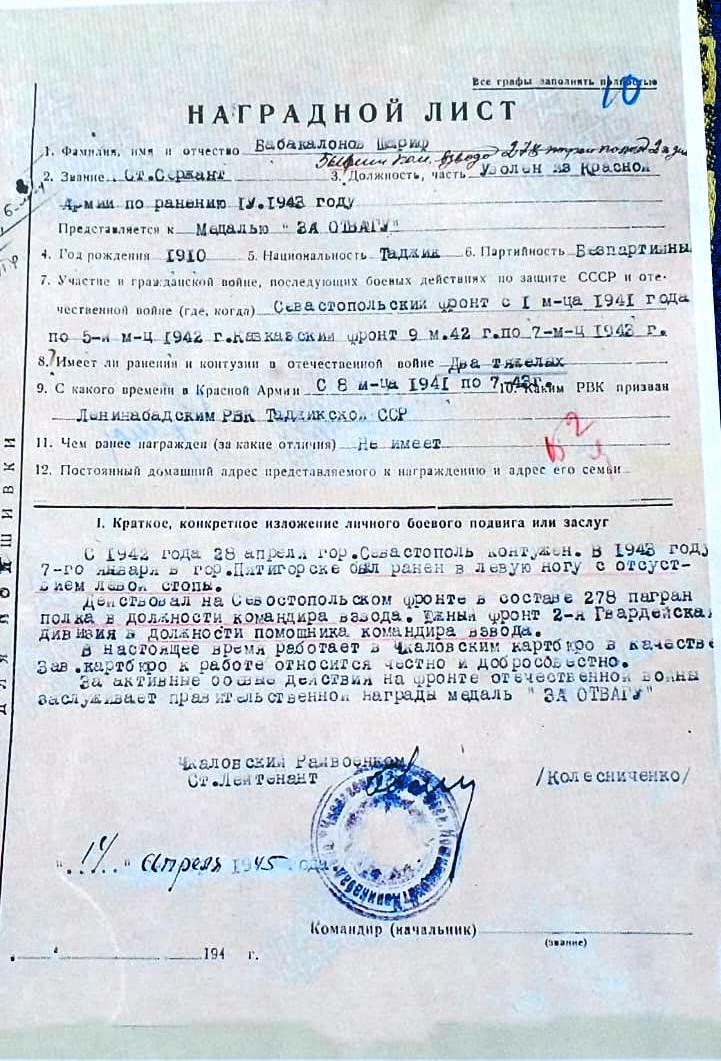 Все графы заполнять полностью
10
НАГРАДНОЙ ЛИСТ
1. Фамилия, имя и отчество Бабакалонов Шариф
Бывший пом. взвода 278
2. Звание Ст.Сержант 3. Должность, часть Уволен из Красной
Армии по ранению IУ.1943 году
Представляется к Медалью " ЗА ОТВАГУ"
4. Год рождения 1910 5. Национальность Таджик 6. Партийность Безпартийны
7. Участие в гражданской войне, последующих боевых действиях по защите СССР и оте-
чественной войне (где, когда) Севастопольский фронт с I м-ца 1941 года
по 5-й м-ц 1942 г.Кавказский фронт 9 м.42 г.по 7-м-ц 1943 г.
8. Имеет ли ранения и контузии в отечественной войне Два тяжелах
9. С какого времени в Красной Армии С 8 м-ца 1941 по 7.43г. 10. Каким РВК призван
Ленинабадским РВК Таджикской ССР
11. Чем ранее награжден (за какие отличия) Не имеет
12. Постоянный домашний адрес представляемого к награждению и адрес его семьи
I. Краткое, конкретное изложение личного боевого подвига или заслуг
С 1942 года 28 апреля гор.Севастополь контужен. В 1943 году
7-го января в гор.Пятигорске был ранен в левую ногу с отсуст-
вием левой стопы.
Действовал на Севостопольском фронте в составе 278 пагран
полка в должности командира взвода. Южный фронт 2-я Гвардейская
дивизия в должности помошника командира взвода.
В настоящее время работает в Чкаловским картбюро в качестве
Зав.картбюро к работе относится честно и добросовестно.
За активные боевые действия на фронте отечественной войны
заслуживает правительственной награды медаль " ЗА ОТВАГУ"
Чкаловский Райвоенком
Ст.Лейтенант /Колесниченко/
"14" апреля 1945 года
Командир (начальник)
(звание)
194 г.